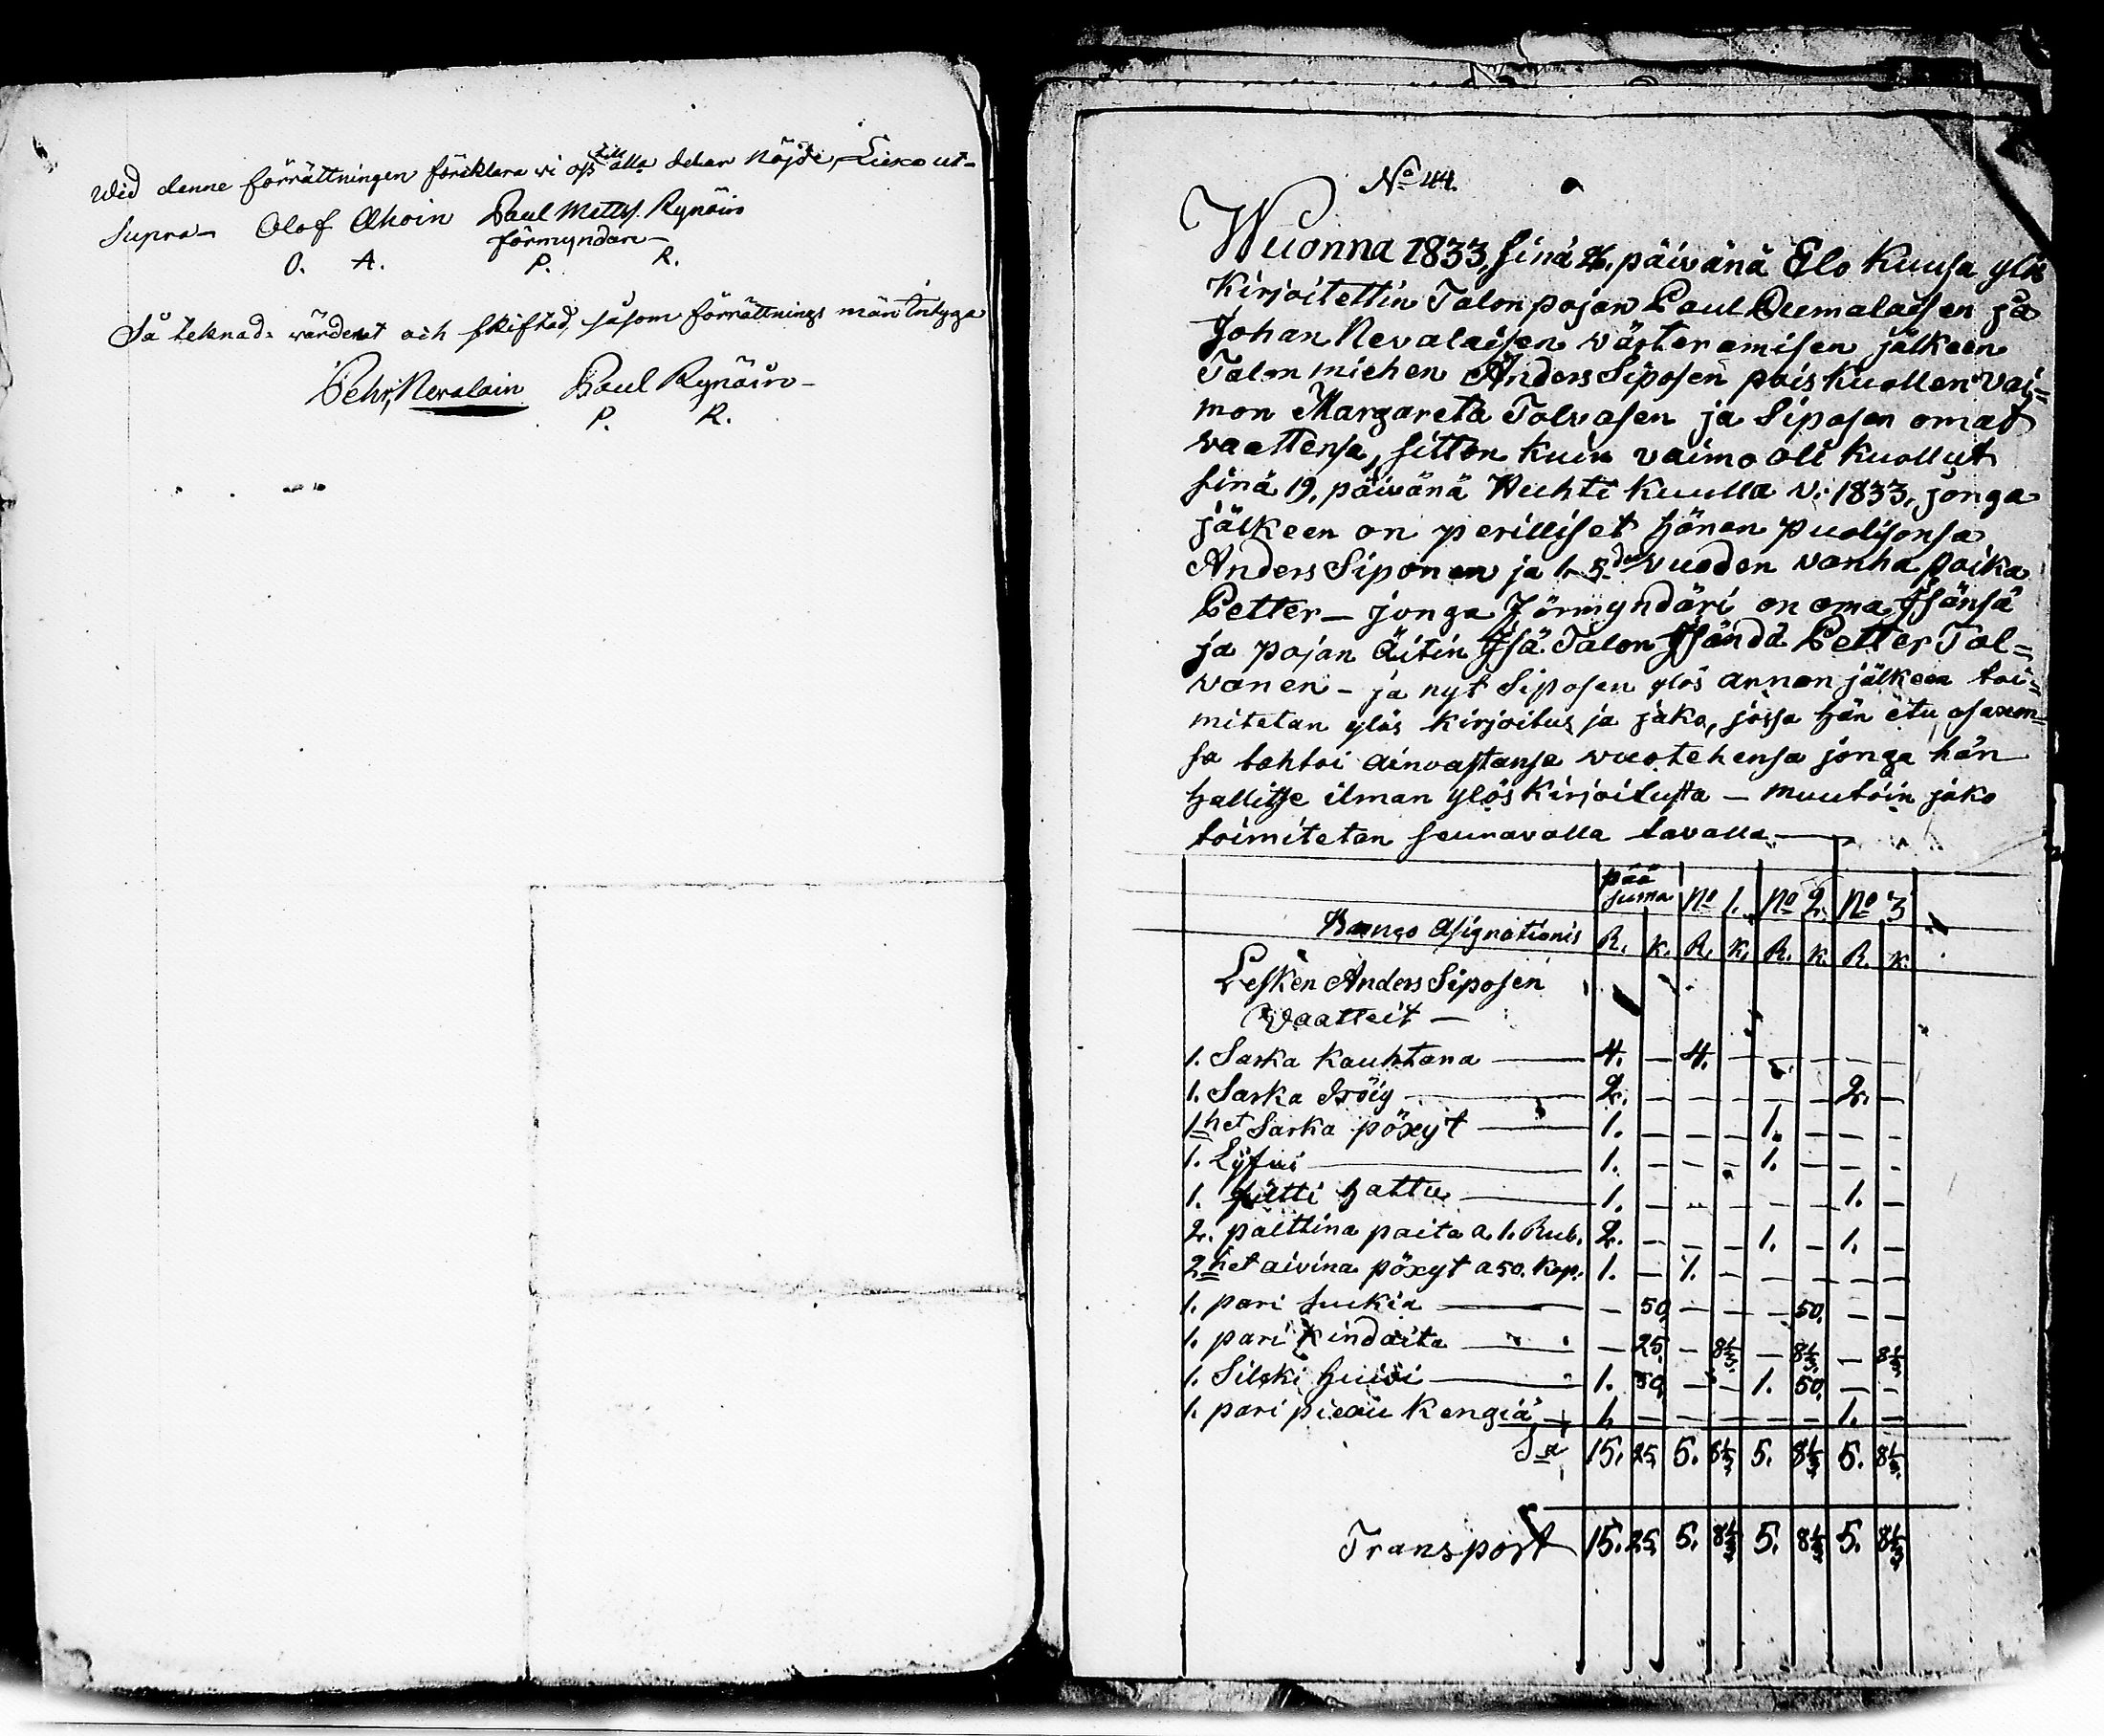 Wid denne förrättningen förklara wi oss till alla delar nöjde, Liexa ut-
supra – Olof Ahoin Paul Mattss. Rynöin
förmyndare –
O. A. P. R.
Så teknad, värderat och skiftad, såsom förrättnings män intyga
Pehr Nevalain Paul Rynöin –
P. R.
No 44.
Wuonna 1833, sinä 26. päivänä Elo Kuusa ylös
Kirjoitettin Talonpojan Paul Ruemalaisen ja
Johan Nevalaisen wärteramisen jälkeen
Talon miehen Anders Siposen pois kuollen Vai=
mon Margareta Tolvasen ja Siposen omat
waattensa, sitten kuin vaimo oli kuollut
sinä 19. päivänä Huhti kuulla v. 1833, jonga
jälkeen on perilliset hänen puolisonsa
Anders Siponen ja 1. 5.den vuoden vanha poika
Petter – jonga Förmyndäri on oma Isänsä
ja pojan Äitin Isä Talon Isändä Petter Tol=
vanen – ja nyt Siposen ylös annon jälkeen toi=
mitetan ylös kirjoitus ja jako, jossa hän etu osaxen=
sa tahtoi ainoastansa wuotehensa jonga hän
hallitse ilman ylöskirjoitusta – muutoin jako
toimitetan seuravalla tavalla –
pää suma No 1. No 2. No 3
Banco Asignationis R. K. R. K. R. K. R. K.
Lesken Anders Siposen
Vaatteit –
1. Sarka Kauhtana – 4. – 4. – – – – –
1. Sarka Tröiy – 2. – – – – – 2. –
1.het Sarka pöxyt – 1. – – – 1. – – –
1. Lijvi – 1. – – – 1. – – –
1. hattu – 1. – – – – – 1. –
2. palttina paita a 1. Rub. 2. – – – 1. – 1. –
2.het aivina pöxyt a 50. Kop. 1. – 1. – – – – –
1. pari Sukia – – 50. – – – 50. – –
1. pari kindaita – – 25. – 8 1/3. – 8 1/3. – 8 1/3.
1. Silcki huivi – 1. 50. – – 1. 50. – –
1. pari pieou Kengiä – 1. – – – – – 1. –
Sa 15. 25. 5. 8 1/3. 5. 8 1/3. 5. 8 1/3.
Transport 15. 25. 5. 8 1/3. 5. 8 1/3. 5. 8 1/3.